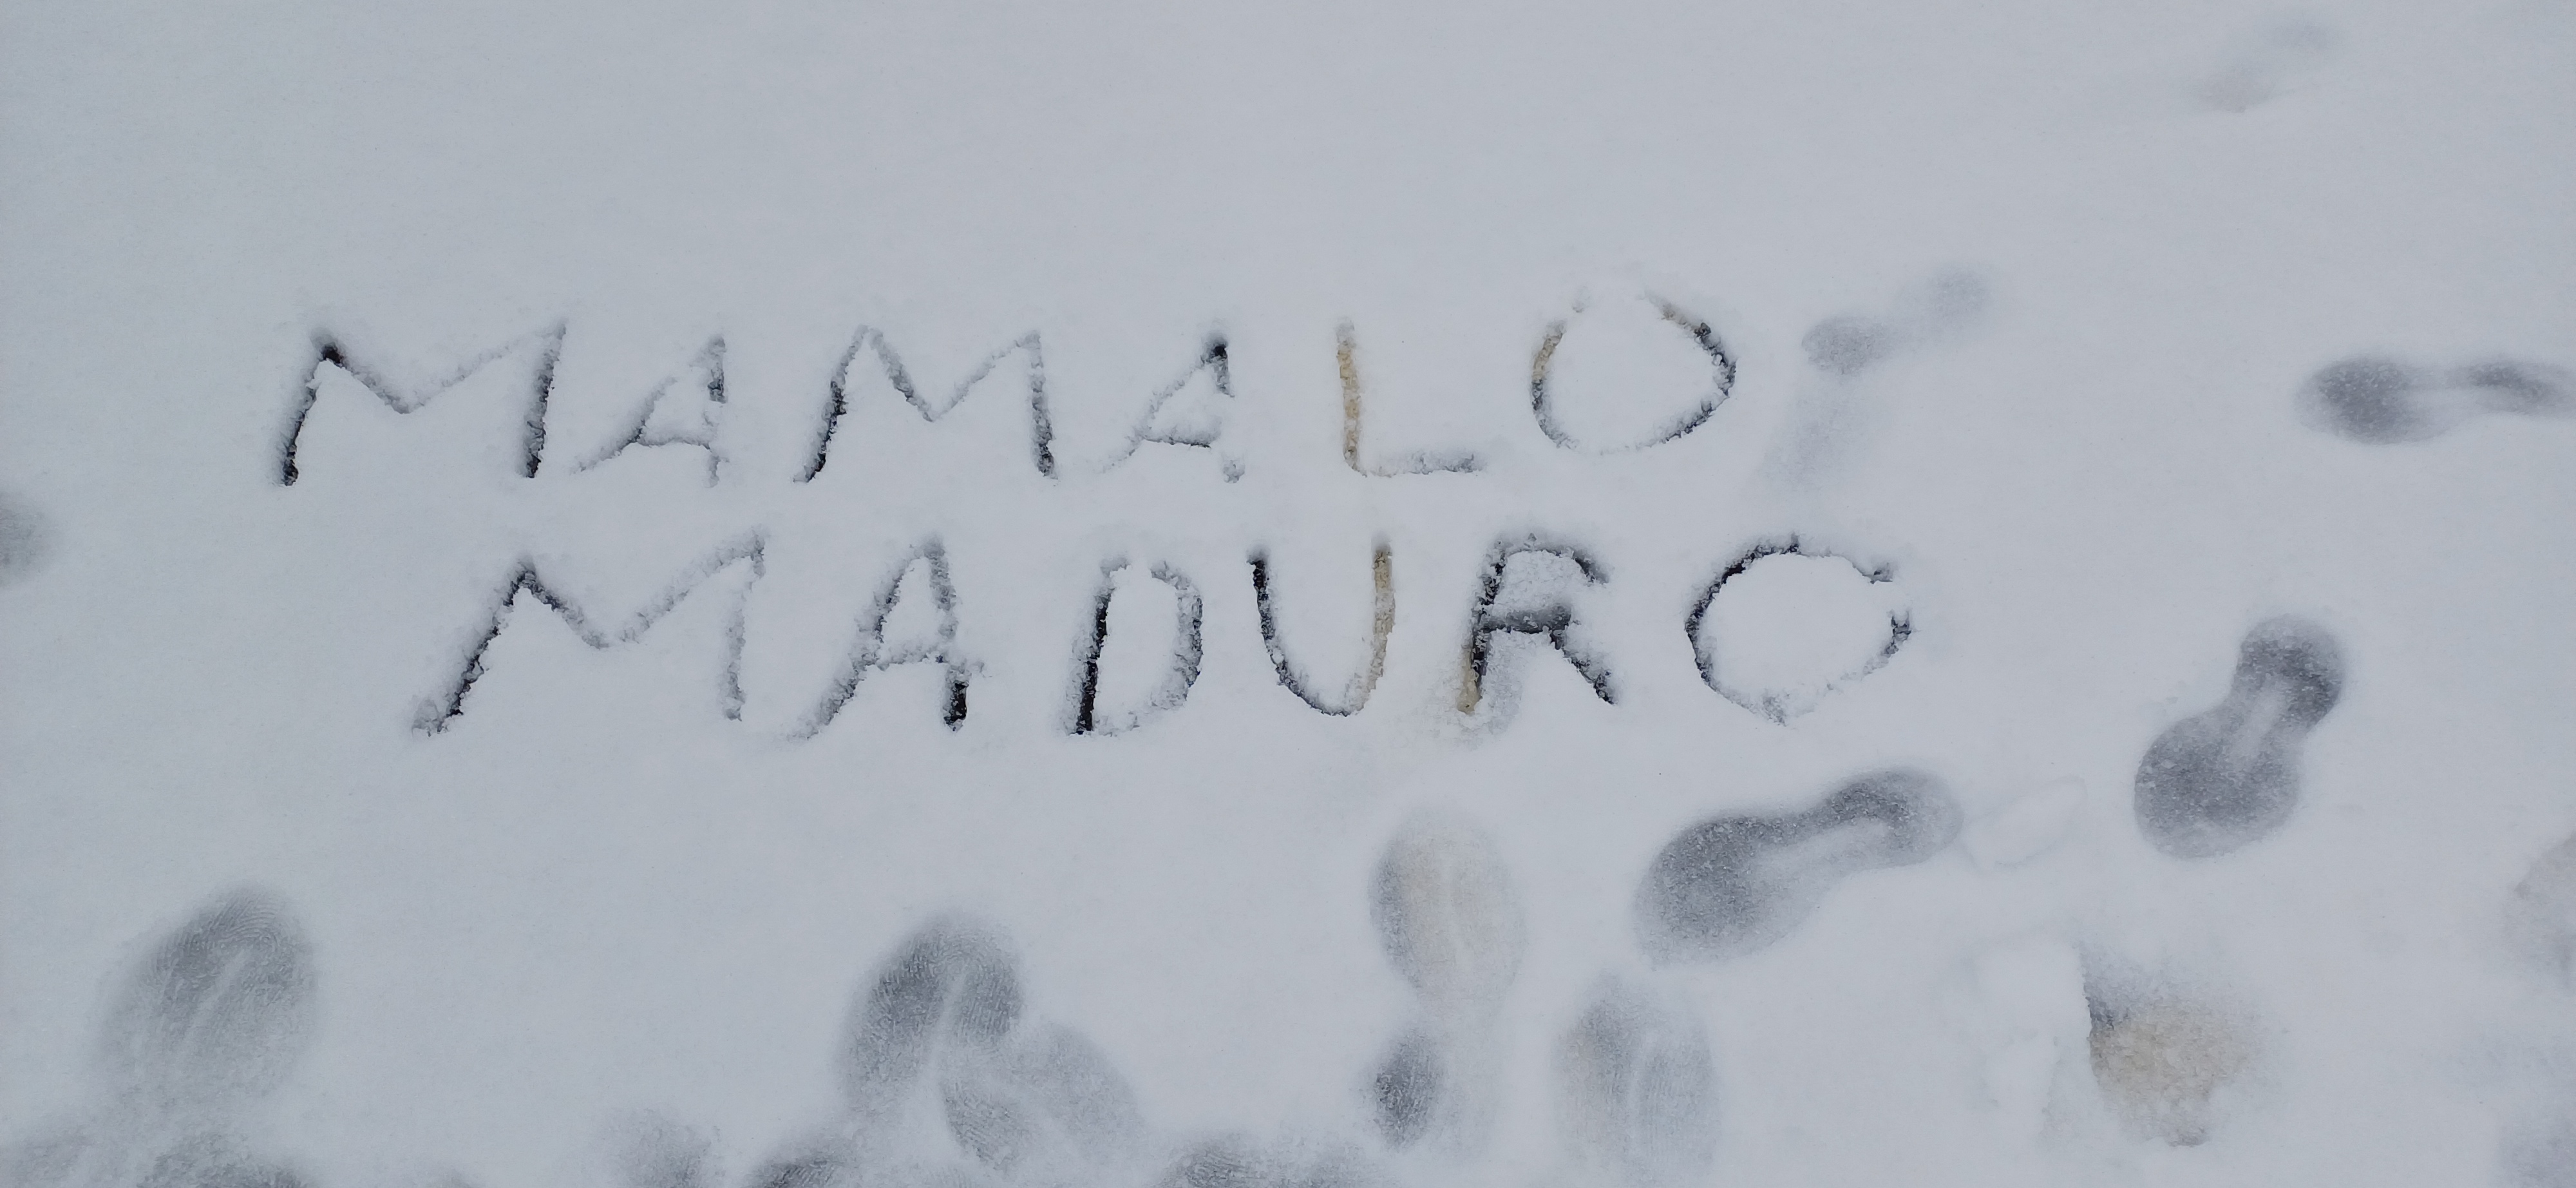 MAMALO
MADURO